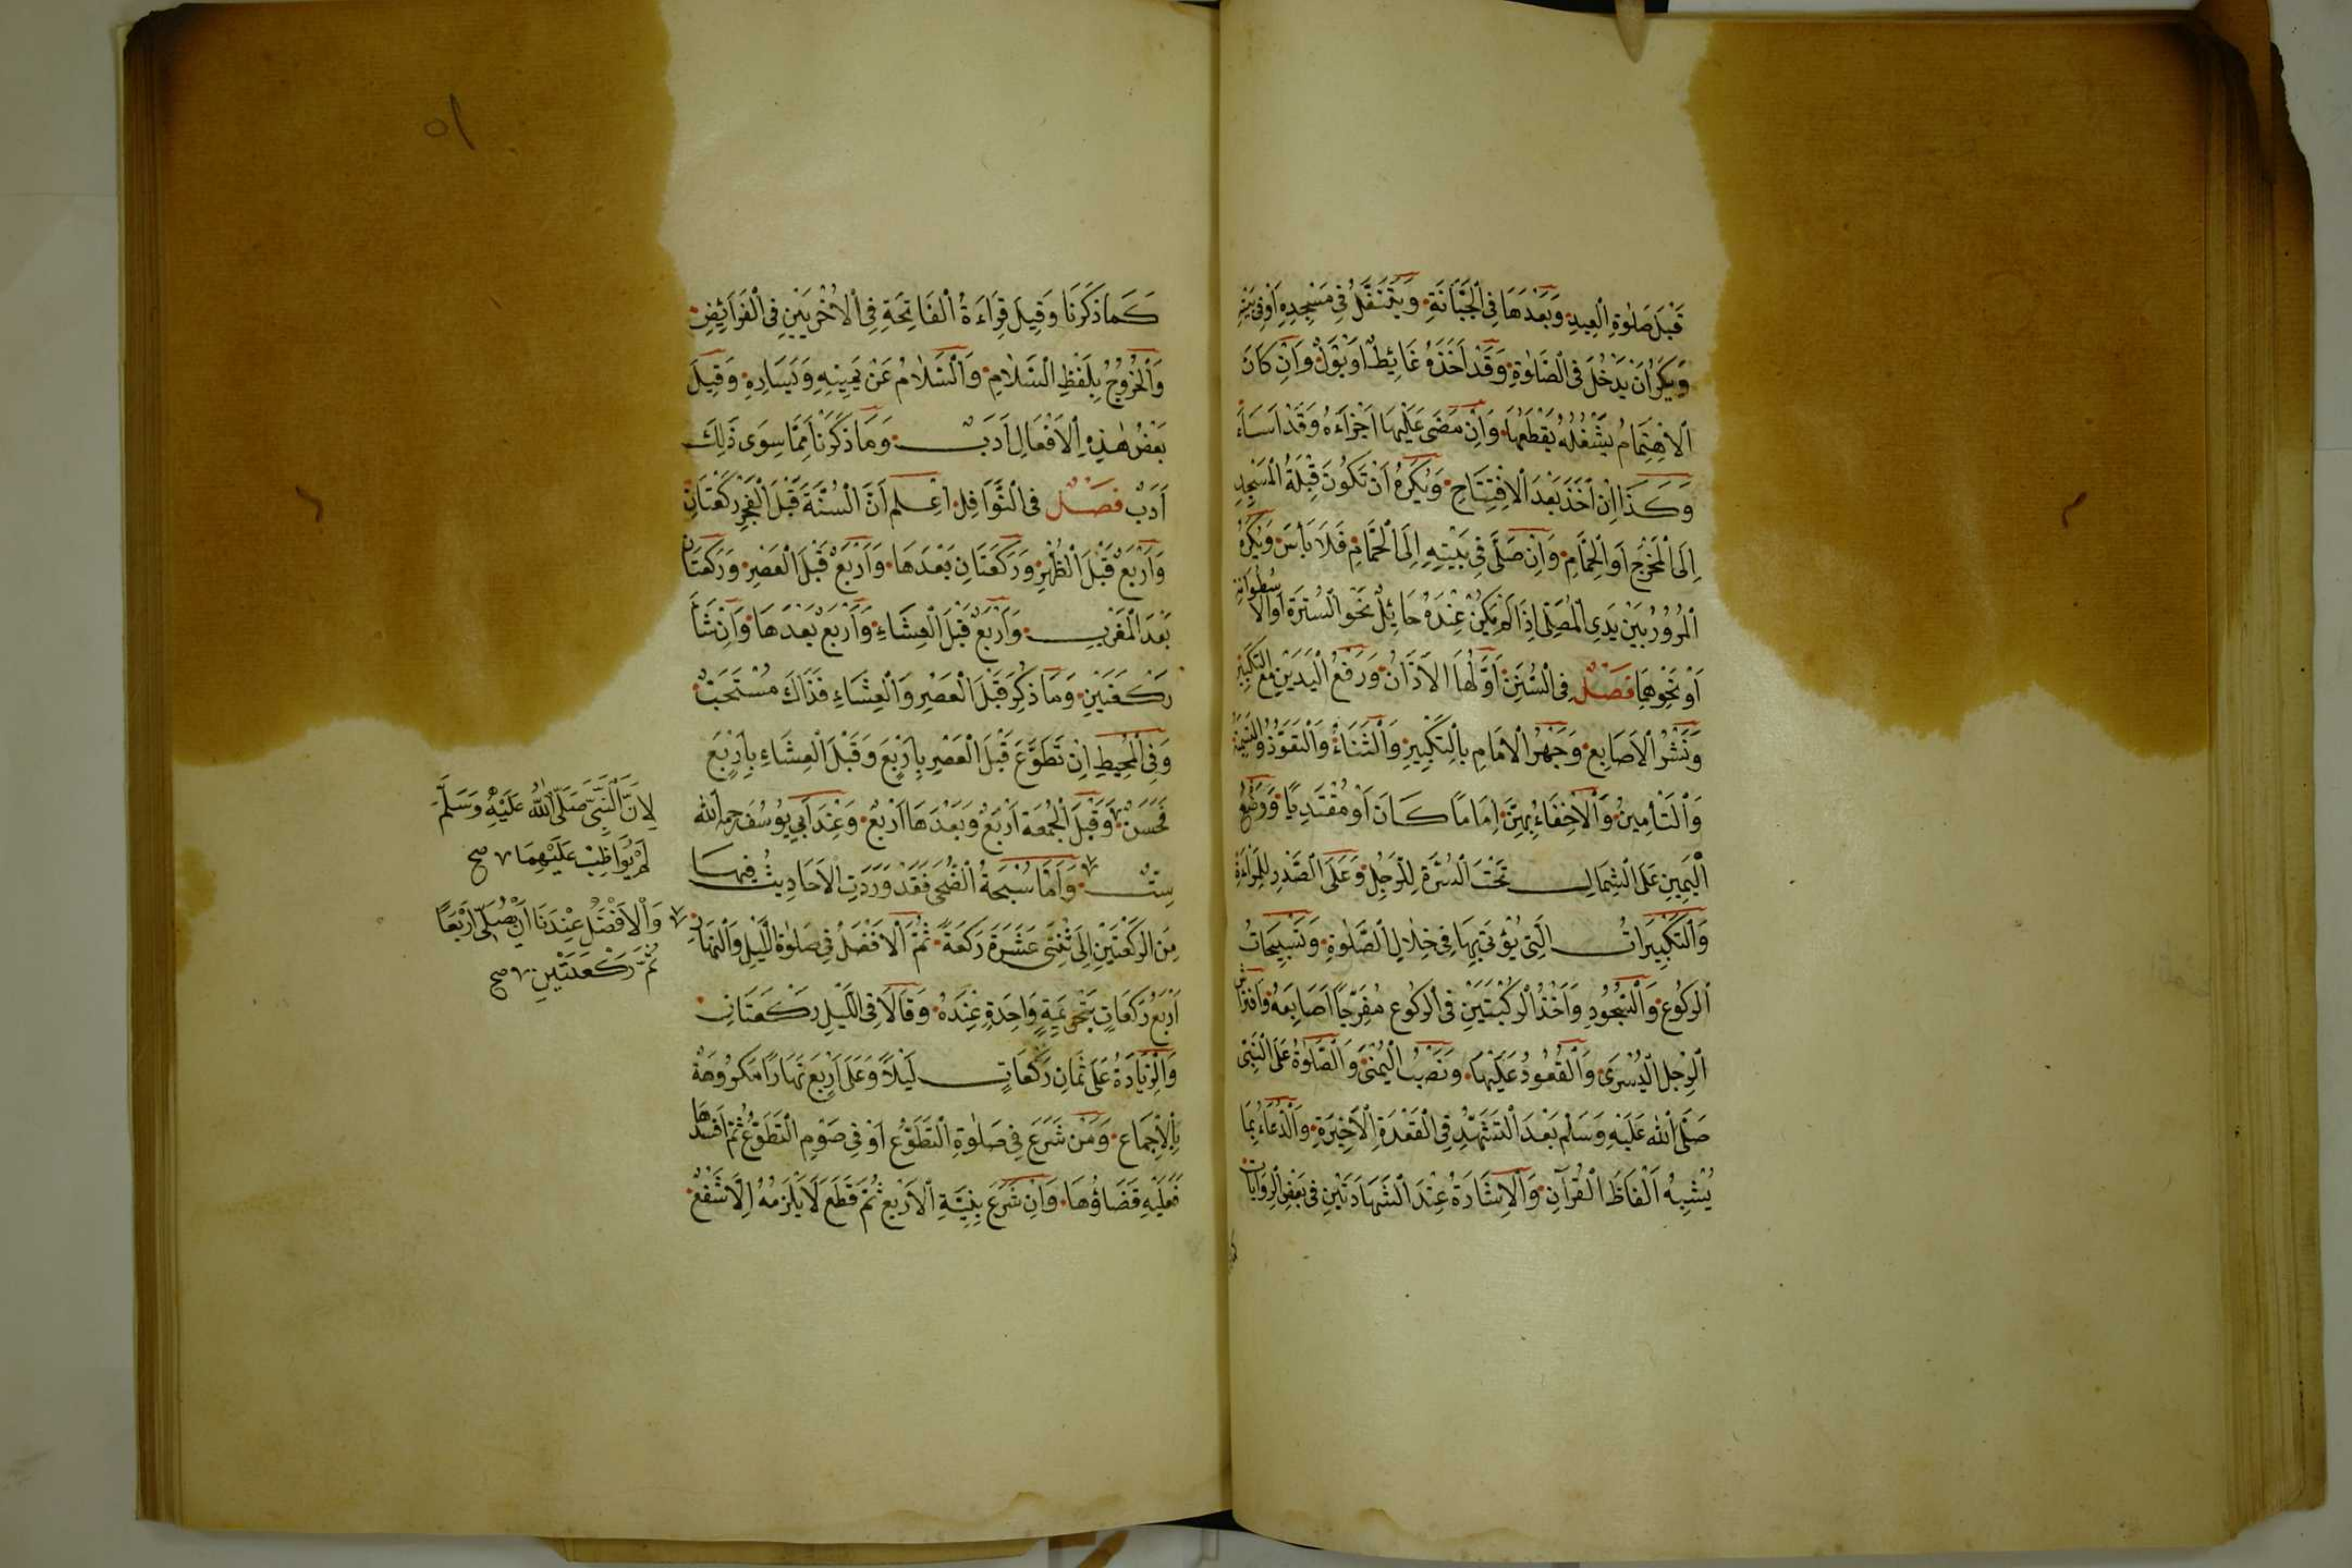 قَبْلَ صَلٰوةِ الْعِيدِ وَبَعْدَهَا فِي الْجَبَّانَةِ وَيَتَنَفَّلُ فِي مَسْجِدِهِ اَوْ فِي بَيْتِهِ
وَيُكْرَهُ اَنْ يَدْخُلَ فِي الصَّلٰوةِ وَقَدْ اَخَذَهُ غَائِطٌ اَوْ بَوْلٌ وَاِنْ كَانَ
الْاِهْتِمَامُ يَشْغَلُهُ يَقْطَعُهَا وَاِنْ مَضَى عَلَيْهَا اَجْزَاَهُ وَقَدْ اَسَاءَ
وَكَذَا اِنْ اَخَذَ بَعْدَ الْاِفْتِتَاحِ وَيُكْرَهُ اَنْ تَكُونَ قِبْلَةُ الْمَسْجِدِ
اِلَى الْمَخْرَجِ اَوِ الْحَمَّامِ وَاِنْ صَلَّى فِي بَيْتِهِ اِلَى الْحَمَّامِ فَلَا بَأْسَ وَيُكْرَهُ
الْمُرُورُ بَيْنَ يَدَيِ الْمُصَلِّي اِذَا لَمْ يَكُنْ عِنْدَهُ حَائِلٌ نَحْوَ السُّتْرَةِ اَوِ الْاُسْطُوَانَةِ
اَوْ نَحْوِهِمَا فَصْلٌ فِي السُّنَنِ اَوَّلُهَا الْاَذَانُ وَرَفْعُ الْيَدَيْنِ مَعَ التَّكْبِيرِ
وَنَشْرُ الْاَصَابِعِ وَجَهْرُ الْاِمَامِ بِالتَّكْبِيرِ وَالثَّنَاءُ وَالتَّعَوُّذُ وَالتَّسْمِيَةُ
وَالتَّأْمِينُ وَالْاِخْفَاءُ بِهِنَّ اِمَامًا كَانَ اَوْ مُقْتَدِيًا وَوَضْعُ
الْيَمِينِ عَلَى الشِّمَالِ تَحْتَ السُّرَّةِ لِلرَّجُلِ وَعَلَى الصَّدْرِ لِلْمَرْاَةِ
وَالتَّكْبِيرَاتُ الَّتِي يُؤْتَى بِهَا فِي خِلَالِ الصَّلٰوةِ وَتَسْبِيحَاتُ
الرُّكُوعِ وَالسُّجُودِ وَاَخْذُ الرُّكْبَتَيْنِ فِي الرُّكُوعِ مُفَرِّجًا اَصَابِعَهُ وَافْتِرَاشُ
الرِّجْلِ الْيُسْرَى وَالْقُعُودُ عَلَيْهَا وَنَصْبُ الْيُمْنَى وَالصَّلٰوةُ عَلَى النَّبِيِّ
صَلَّى اللهُ عَلَيْهِ وَسَلَّمَ بَعْدَ التَّشَهُّدِ فِي الْقَعْدَةِ الْاَخِيرَةِ وَالدُّعَاءُ بِمَا
يُشْبِهُ اَلْفَاظَ الْقُرْآنِ وَالْاِشَارَةُ عِنْدَ الشَّهَادَتَيْنِ فِي بَعْضِ الرِّوَايَاتِ
٥١
كَمَا ذَكَرْنَا وَقِيلَ قِرَاءَةُ الْفَاتِحَةِ فِي الْاُخْرَيَيْنِ فِي الْفَرَائِضِ
وَالْخُرُوجُ بِلَفْظِ السَّلَامِ وَالسَّلَامُ عَنْ يَمِينِهِ وَيَسَارِهِ وَقِيلَ
بَعْضُ هٰذِهِ الْاَفْعَالِ اَدَبٌ وَمَا ذَكَرْنَا مِمَّا سِوَى ذٰلِكَ
اَدَبٌ فَصْلٌ فِي النَّوَافِلِ اِعْلَمْ اَنَّ السُّنَّةَ قَبْلَ الْفَجْرِ رَكْعَتَانِ
وَاَرْبَعٌ قَبْلَ الظُّهْرِ وَرَكْعَتَانِ بَعْدَهَا وَاَرْبَعٌ قَبْلَ الْعَصْرِ وَرَكْعَتَانِ
بَعْدَ الْمَغْرِبِ وَاَرْبَعٌ قَبْلَ الْعِشَاءِ وَاَرْبَعٌ بَعْدَهَا وَاِنْ شَاءَ
رَكْعَتَيْنِ وَمَا ذُكِرَ قَبْلَ الْعَصْرِ وَالْعِشَاءِ فَذَاكَ مُسْتَحَبٌّ
وَفِي الْمُحِيطِ اِنْ تَطَوَّعَ قَبْلَ الْعَصْرِ بِاَرْبَعٍ وَقَبْلَ الْعِشَاءِ بِاَرْبَعٍ
فَحَسَنٌ وَقَبْلَ الْجُمُعَةِ اَرْبَعٌ وَبَعْدَهَا اَرْبَعٌ وَعِنْدَ اَبِي يُوسُفَ رحمه الله
سِتٌّ وَاَمَّا سُبْحَةُ الضُّحَى فَقَدْ وَرَدَتِ الْاَحَادِيثُ فِيهَا
مِنَ الرَّكْعَتَيْنِ اِلَى ثِنْتَيْ عَشَرَةَ رَكْعَةً ثُمَّ الْاَفْضَلُ فِي صَلٰوةِ اللَّيْلِ وَالنَّهَارِ
اَرْبَعُ رَكَعَاتٍ بِتَحْرِيمَةٍ وَاحِدَةٍ عِنْدَهُ وَقَالَا فِي اللَّيْلِ رَكْعَتَانِ
وَالزِّيَادَةُ عَلَى ثَمَانِ رَكَعَاتٍ لَيْلًا وَعَلَى اَرْبَعٍ نَهَارًا مَكْرُوهَةٌ
بِالْاِجْمَاعِ وَمَنْ شَرَعَ فِي صَلٰوةِ التَّطَوُّعِ اَوْ فِي صَوْمِ التَّطَوُّعِ ثُمَّ اَفْسَدَهَا
فَعَلَيْهِ قَضَاؤُهَا وَاِنْ شَرَعَ بِنِيَّةِ الْاَرْبَعِ ثُمَّ قَطَعَ لَا يَلْزَمُهُ اِلَّا شَفْعٌ
لِاَنَّ النَّبِيَّ صَلَّى اللهُ عَلَيْهِ وَسَلَّمَ
لَمْ يُوَاظِبْ عَلَيْهِمَا صح
وَالْاَفْضَلُ عِنْدَنَا اَنْ يُصَلِّيَ اَرْبَعًا
ثُمَّ رَكْعَتَيْنِ صح